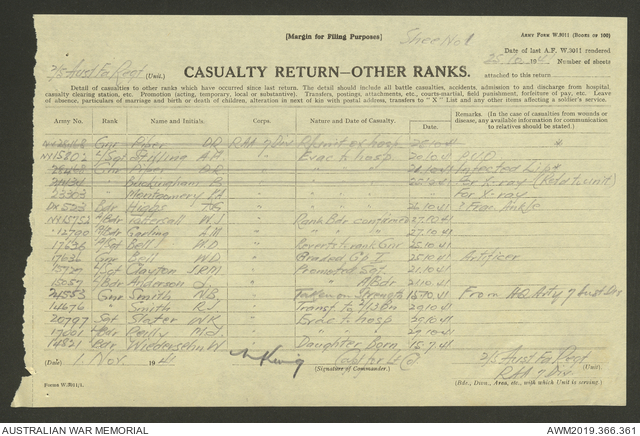 [Margin for Filing Purposes]
Sheet No 1
ARMY FORM W.3011 (BOOKS OF 100)
Date of last A.F. W.3011 rendered
25.10.41
Number of sheets
2/5 Aust Fd Regt (Unit.)
attached to this return
CASUALTY RETURN—OTHER RANKS.
Detail of casualties to other ranks which have occurred since last return. The detail should include all battle casualties, accidents, admission to and discharge from hospital, casualty clearing station, etc. Promotion (acting, temporary, local or substantive). Transfers, postings, attachments, etc., courts-martial, field punishment, forfeiture of pay, etc. Leave of absence, particulars of marriage and birth or death of children, alteration in next of kin with postal address, transfers to "X" List and any other items affecting a soldier's service.
Army No. Rank Name and Initials. Corps. Nature and Date of Casualty. Date. Remarks. (In the case of casualties from wounds or disease, any available information for communication to relatives should be stated.)
Gnr Piper DR RAA 7 Div ex hosp 20.10.41
NX15802 L/Sgt Stirling A.A. " Evac to hosp 20.10.41
Gnr Piper DR " " " Infected Lip
Buckingham " " " For X-ray (Retd to unit)
Montgomery " " " For X-ray
Bdr JG " " " 26.10.41 ? Frac Ankle
NX15752 Bdr Tattersall W.J " Rank Bdr confirmed 27.10.41
12790 Bdr Gosling A.M " " " " 27.10.41
17636 Bell W.D " Reverts to rank Gnr 25.10.41
17636 Gnr Bell W.D " Graded Gp I 25.10.41 Artificer
Clayton J.R.M " Promoted Sgt 21.10.41
15057 Anderson " A/Bdr 21.10.41
24553 Gnr Smith N.B. " Taken on Strength From HQ Arty 7 Aust Div
14676 " Smith R.J " Transf. 29.10.41
20797 Sgt Slater W.R " Evac to hosp 29.10.41
Bdr " " " 29.10.41
14821 Bdr W " Daughter born 15.7.41
(Date) 1 Nov. 1941
(Signature of Commander.)
2/5 Aust Fd Regt (Unit.)
RAA 7 Div
(Bde., Divn., Area, etc., with which Unit is serving.)
FORMS W.3011/1.
AUSTRALIAN WAR MEMORIAL
AWM2019.366.361